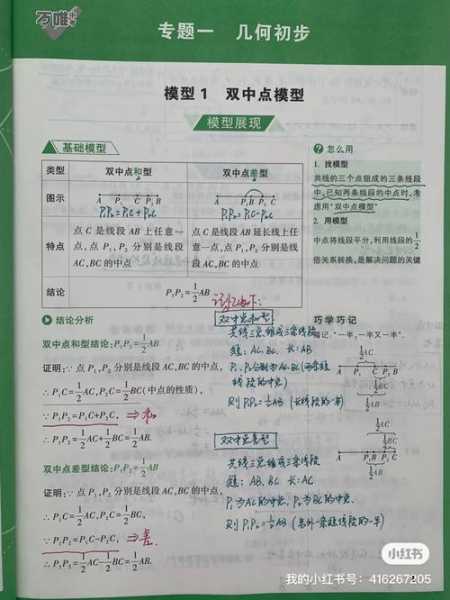 万唯中考
专题一 几何初步
模型1 双中点模型
模型展现
基础模型
类型 双中点和型 双中点差型
图示 A P₁ C P₂ B A P₁ B P₂ C
P₁P₂=P₁C+P₂C P₁P₂=P₁C-P₂C
特点
点 C 是线段 AB 上任意一点,点 P₁,P₂ 分别是线段 AC,BC 的中点
点 C 是线段 AB 延长线上任意一点,点 P₁,P₂ 分别是线段 AC,BC 的中点
结论 P₁P₂=1/2AB
怎么用
1. 找模型
共线的三个点组成的三条线段
中,已知两条线段的中点时,考
虑用“双中点模型”
2. 用模型
中点将线段平分,利用线段的1/2
倍关系转换,是解决问题的关键
结论分析
双中点和型结论:P₁P₂=1/2AB
证明:∵点 P₁,P₂ 分别是线段 AC,BC 的中点,
∴P₁C=1/2AC,P₂C=1/2BC(中点的性质),
∵P₁P₂=P₁C+P₂C, ⇒和
∴P₁P₂=1/2AC+1/2BC=1/2AB.
双中点差型结论:P₁P₂=1/2AB
证明:∵点 P₁,P₂ 分别是线段 AC,BC 的中点,
∴P₁C=1/2AC,P₂C=1/2BC,
∵P₁P₂=P₁C-P₂C, ⇒差
∴P₁P₂=1/2AC-1/2BC=1/2AB.
双中点和型
共线三点组成三条线段
短:AC,BC. 长:AB
P₁,P₂分别为AC,BC(两条短
线段的中点)
则P₁P₂=1/2AB(长线段的一半)
双中点差型
共线三点组成三条线段
短:AB,BC 长:AC
P₁为AC的中点,P₂为BC的中点.
则P₁P₂=1/2AB(另外一条短线段的一半)
巧学巧记
简记:“一半,一半又一半”.
1/2AC
A P₁ C P₂ B
1/2BC
1/2AB
1/2AC
1/2BC
A P₁ B P₂ C
1/2AB
小红书
我的小红书号:416267205